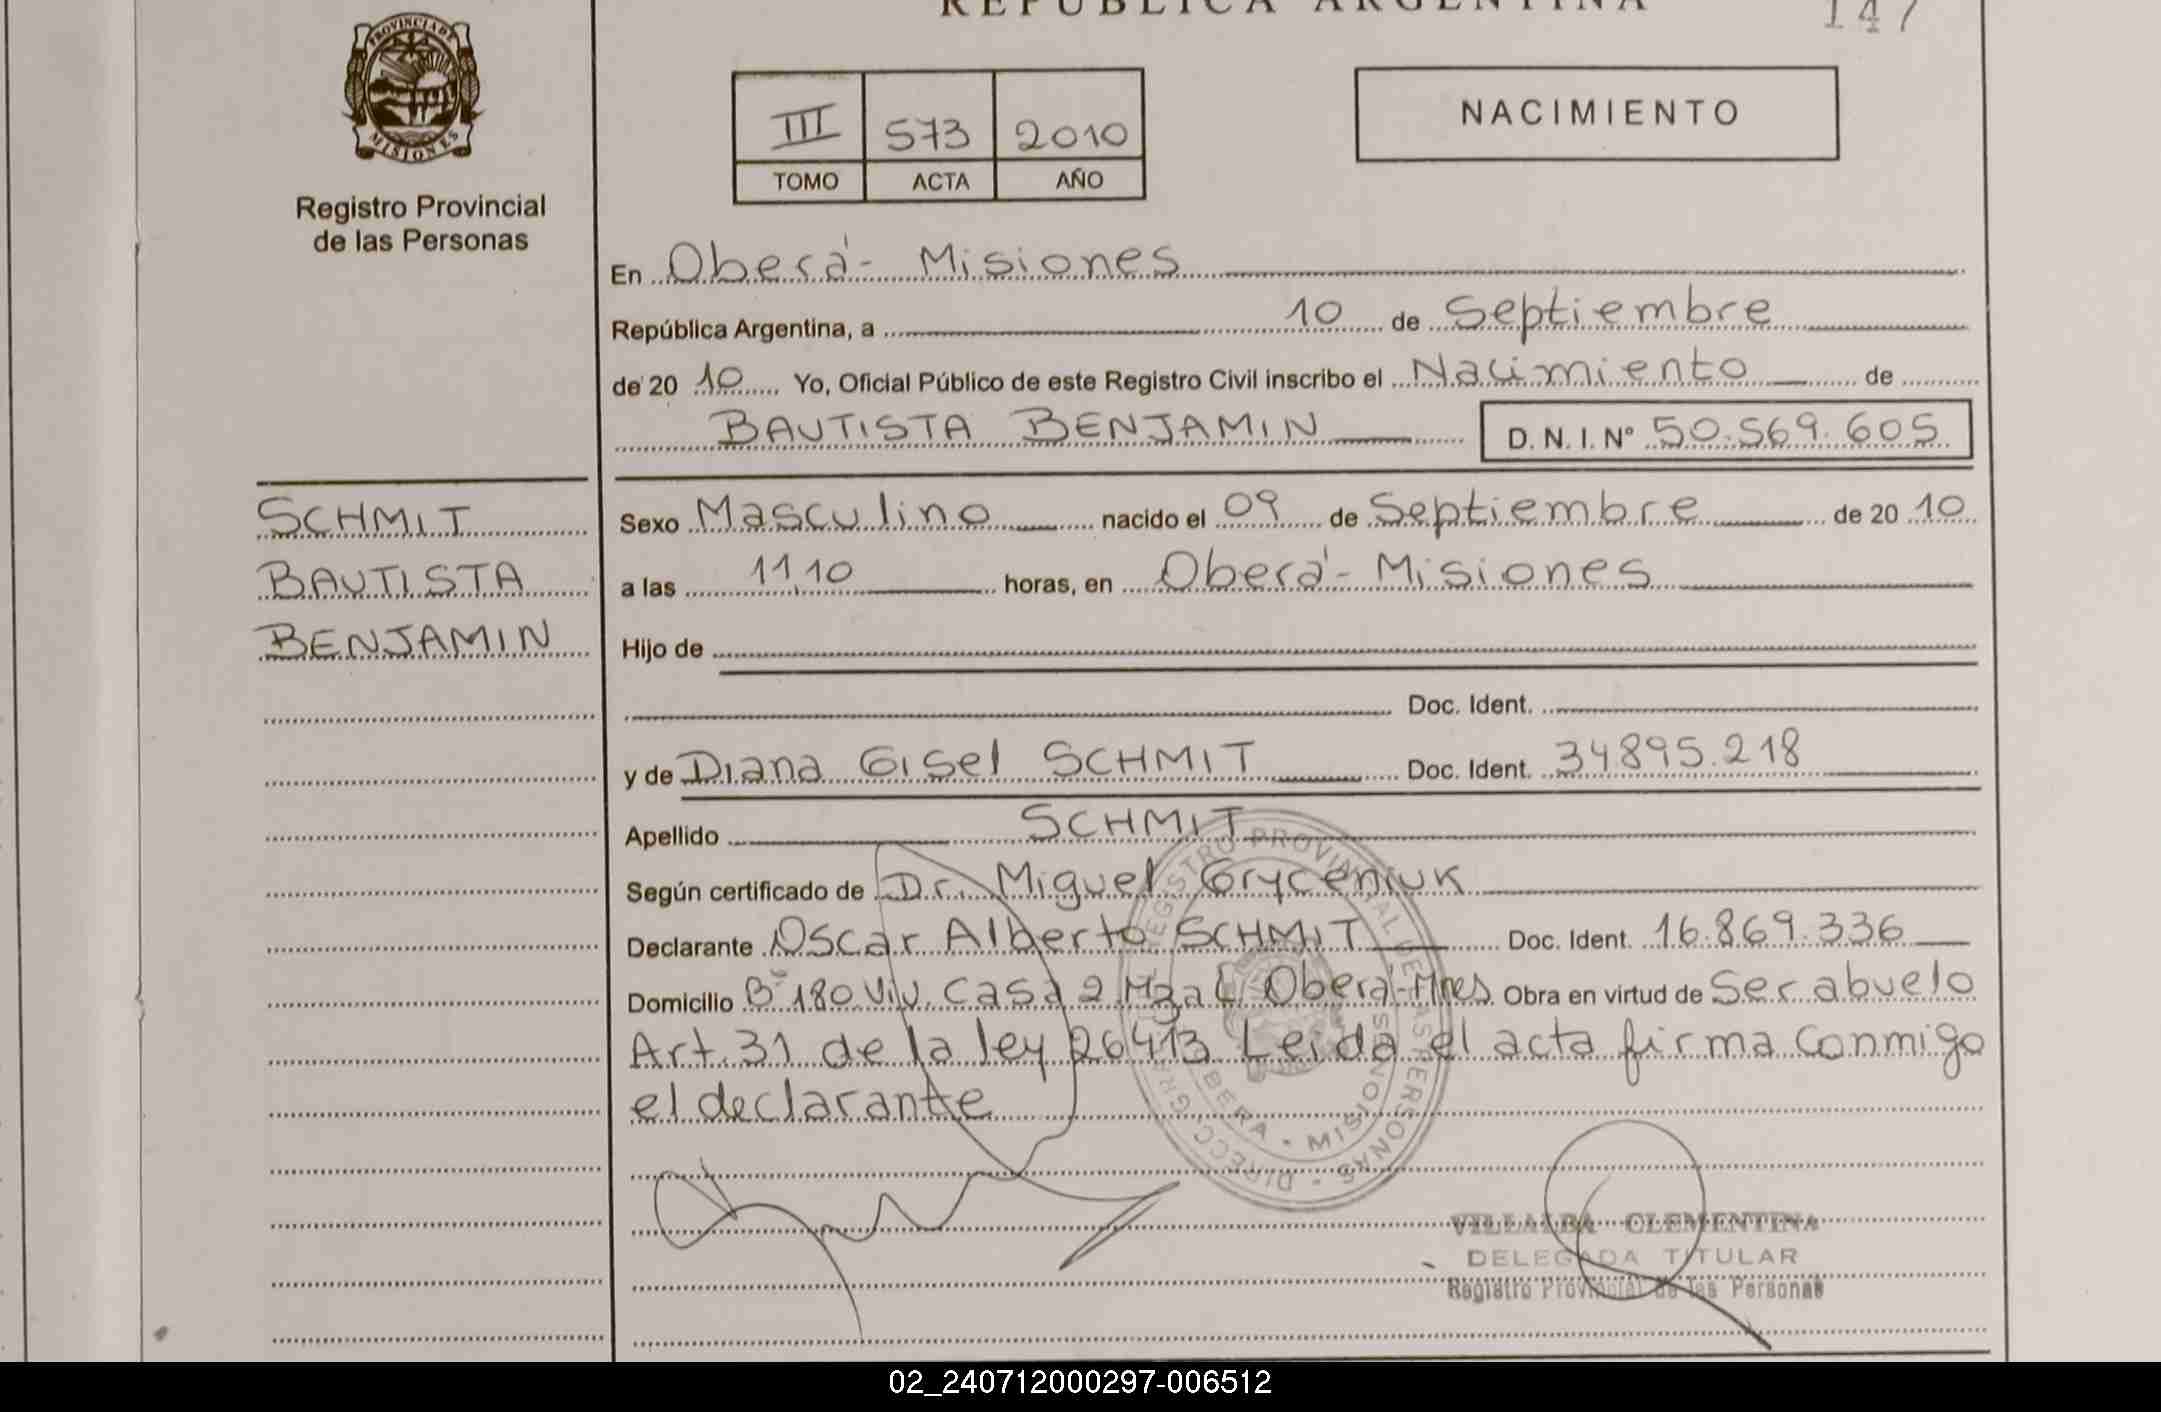 REPUBLICA ARGENTINA
147
PROVINCIA DE
MISIONES
Registro Provincial
de las Personas
III 573 2010
TOMO ACTA AÑO
NACIMIENTO
En Oberá - Misiones
República Argentina, a 10 de Septiembre
de 20 10 Yo, Oficial Público de este Registro Civil inscribo el Nacimiento de
BAUTISTA BENJAMIN D.N.I. Nº 50.569.605
SCHMIT
BAUTISTA
BENJAMIN
Sexo Masculino nacido el 09 de Septiembre de 20 10
a las 11,10 horas, en Oberá - Misiones
Hijo de
Doc. Ident.
y de Diana Gisel SCHMIT Doc. Ident. 34.895.218
Apellido SCHMIT
Según certificado de Dr. Miguel Gryceniuk
Declarante Oscar Alberto SCHMIT Doc. Ident. 16.869.336
Domicilio Bº 180 Viv. Casa 2 Mza Oberá - Mnes Obra en virtud de Ser abuelo
Art. 31 de la ley 26413 Leida el acta firma conmigo
el declarante
REGISTRO PROVINCIAL DE LAS PERSONAS
OBERA - MISIONES
VILLALBA CLEMENTINA
DELEGADA TITULAR
Registro Provincial de las Personas
02_240712000297-006512